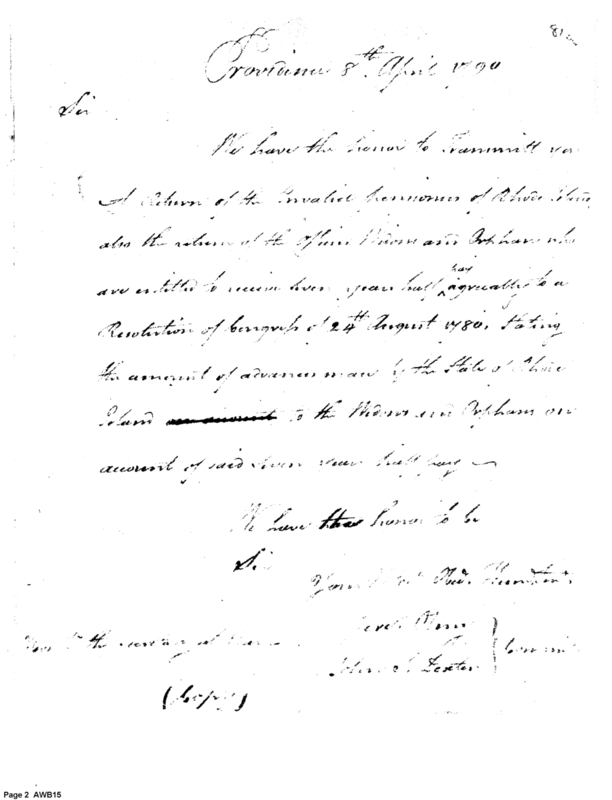 81
Providence 8th. April 1790
Sir
We have the honor to Transmitt you
A Return of the Invalid pensioners of Rhode Island
also the return of the Officers Widows and Orphans who
are entitled to receive seven years half pay agreeably to a
Resolution of Congress of 24th August 1780. Stating
the amount of advances made by the State of Rhode
Island to the Widows and Orphans on
account of said seven years half pay
We have the honor to be
Sir
Your Obd. Humble
John S. Dexter
the secretary at
(Copy)
Page 2 AWB15